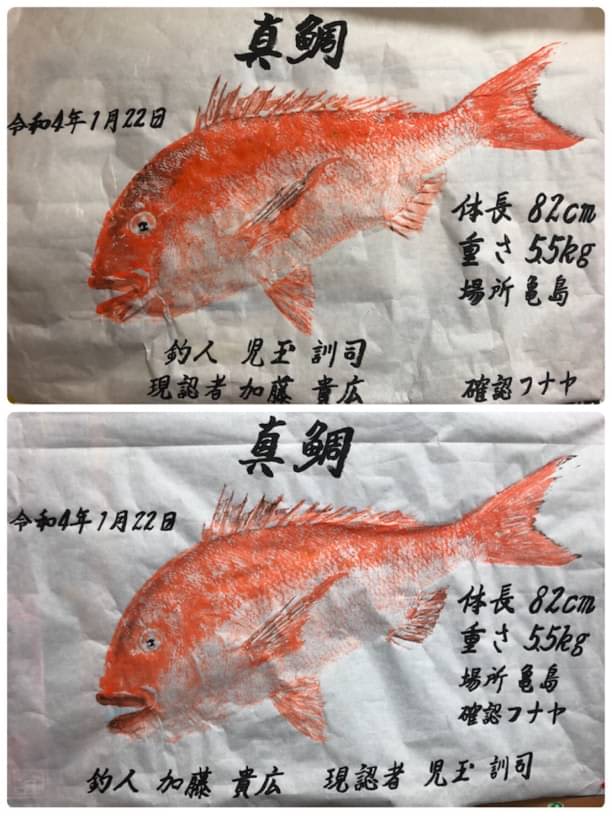 真鯛
令和4年1月22日
体長 82cm
重さ 5.5kg
場所 亀島
釣人 児玉 訓司
現認者 加藤 貴広
確認フナヤ
真鯛
令和4年1月22日
体長 82cm
重さ 5.5kg
場所 亀島
確認フナヤ
釣人 加藤 貴広 現認者 児玉 訓司